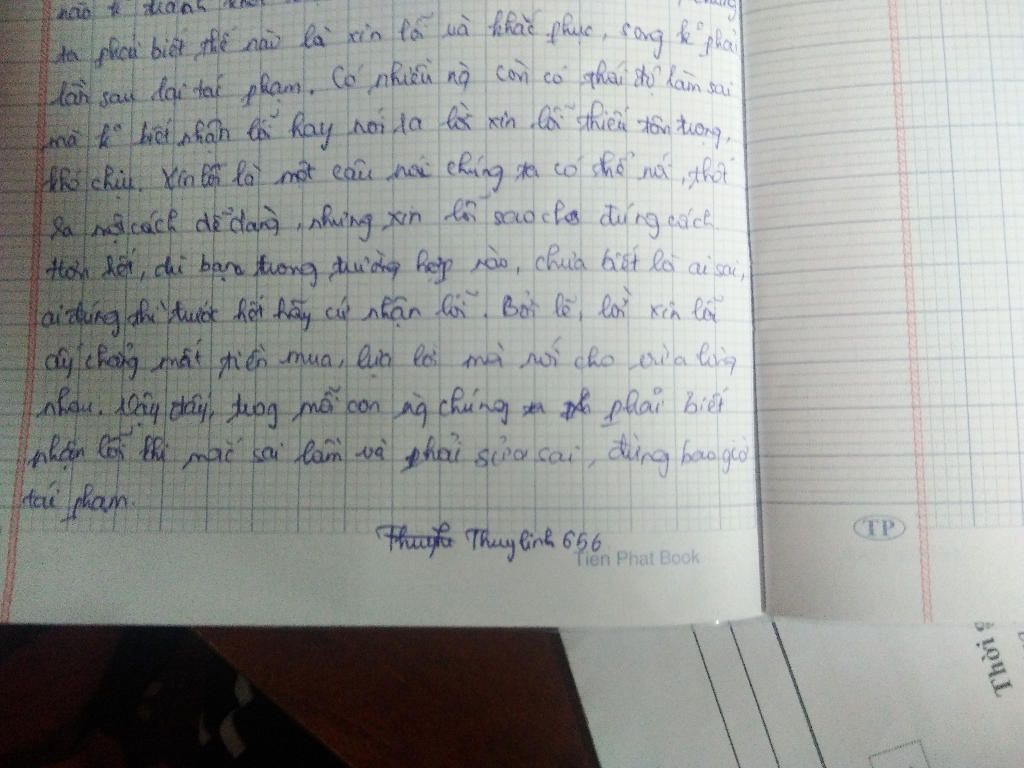 nào k tránh khỏi
ta phải biết thế nào là xin lỗi và khắc phục, song k phải
lần sau lại tái phạm. Có nhiều ng còn có thái độ làm sai
mà k biết nhận lỗi hay nói ra lời xin lỗi thiếu tôn trọng,
khó chịu. Xin lỗi là một câu nói chúng ta có thể nói, thốt
ra một cách dễ dàng, nhưng xin lỗi sao cho đúng cách
Hơn hết, dù bạn trong trường hợp nào, chưa biết là ai sai,
ai đúng thì trước hết hãy cứ nhận lỗi. Bởi lẽ, lời xin lỗi
ấy chẳng mất tiền mua, lựa lời mà nói cho vừa lòng
nhau. Vậy đấy, trog mỗi con ng chúng ta phải biết
nhận lỗi khi mắc sai lầm và phải sửa sai, đừng bao giờ
tái phạm.
Thuylinh 656
Tien Phat Book
TP
Thời g